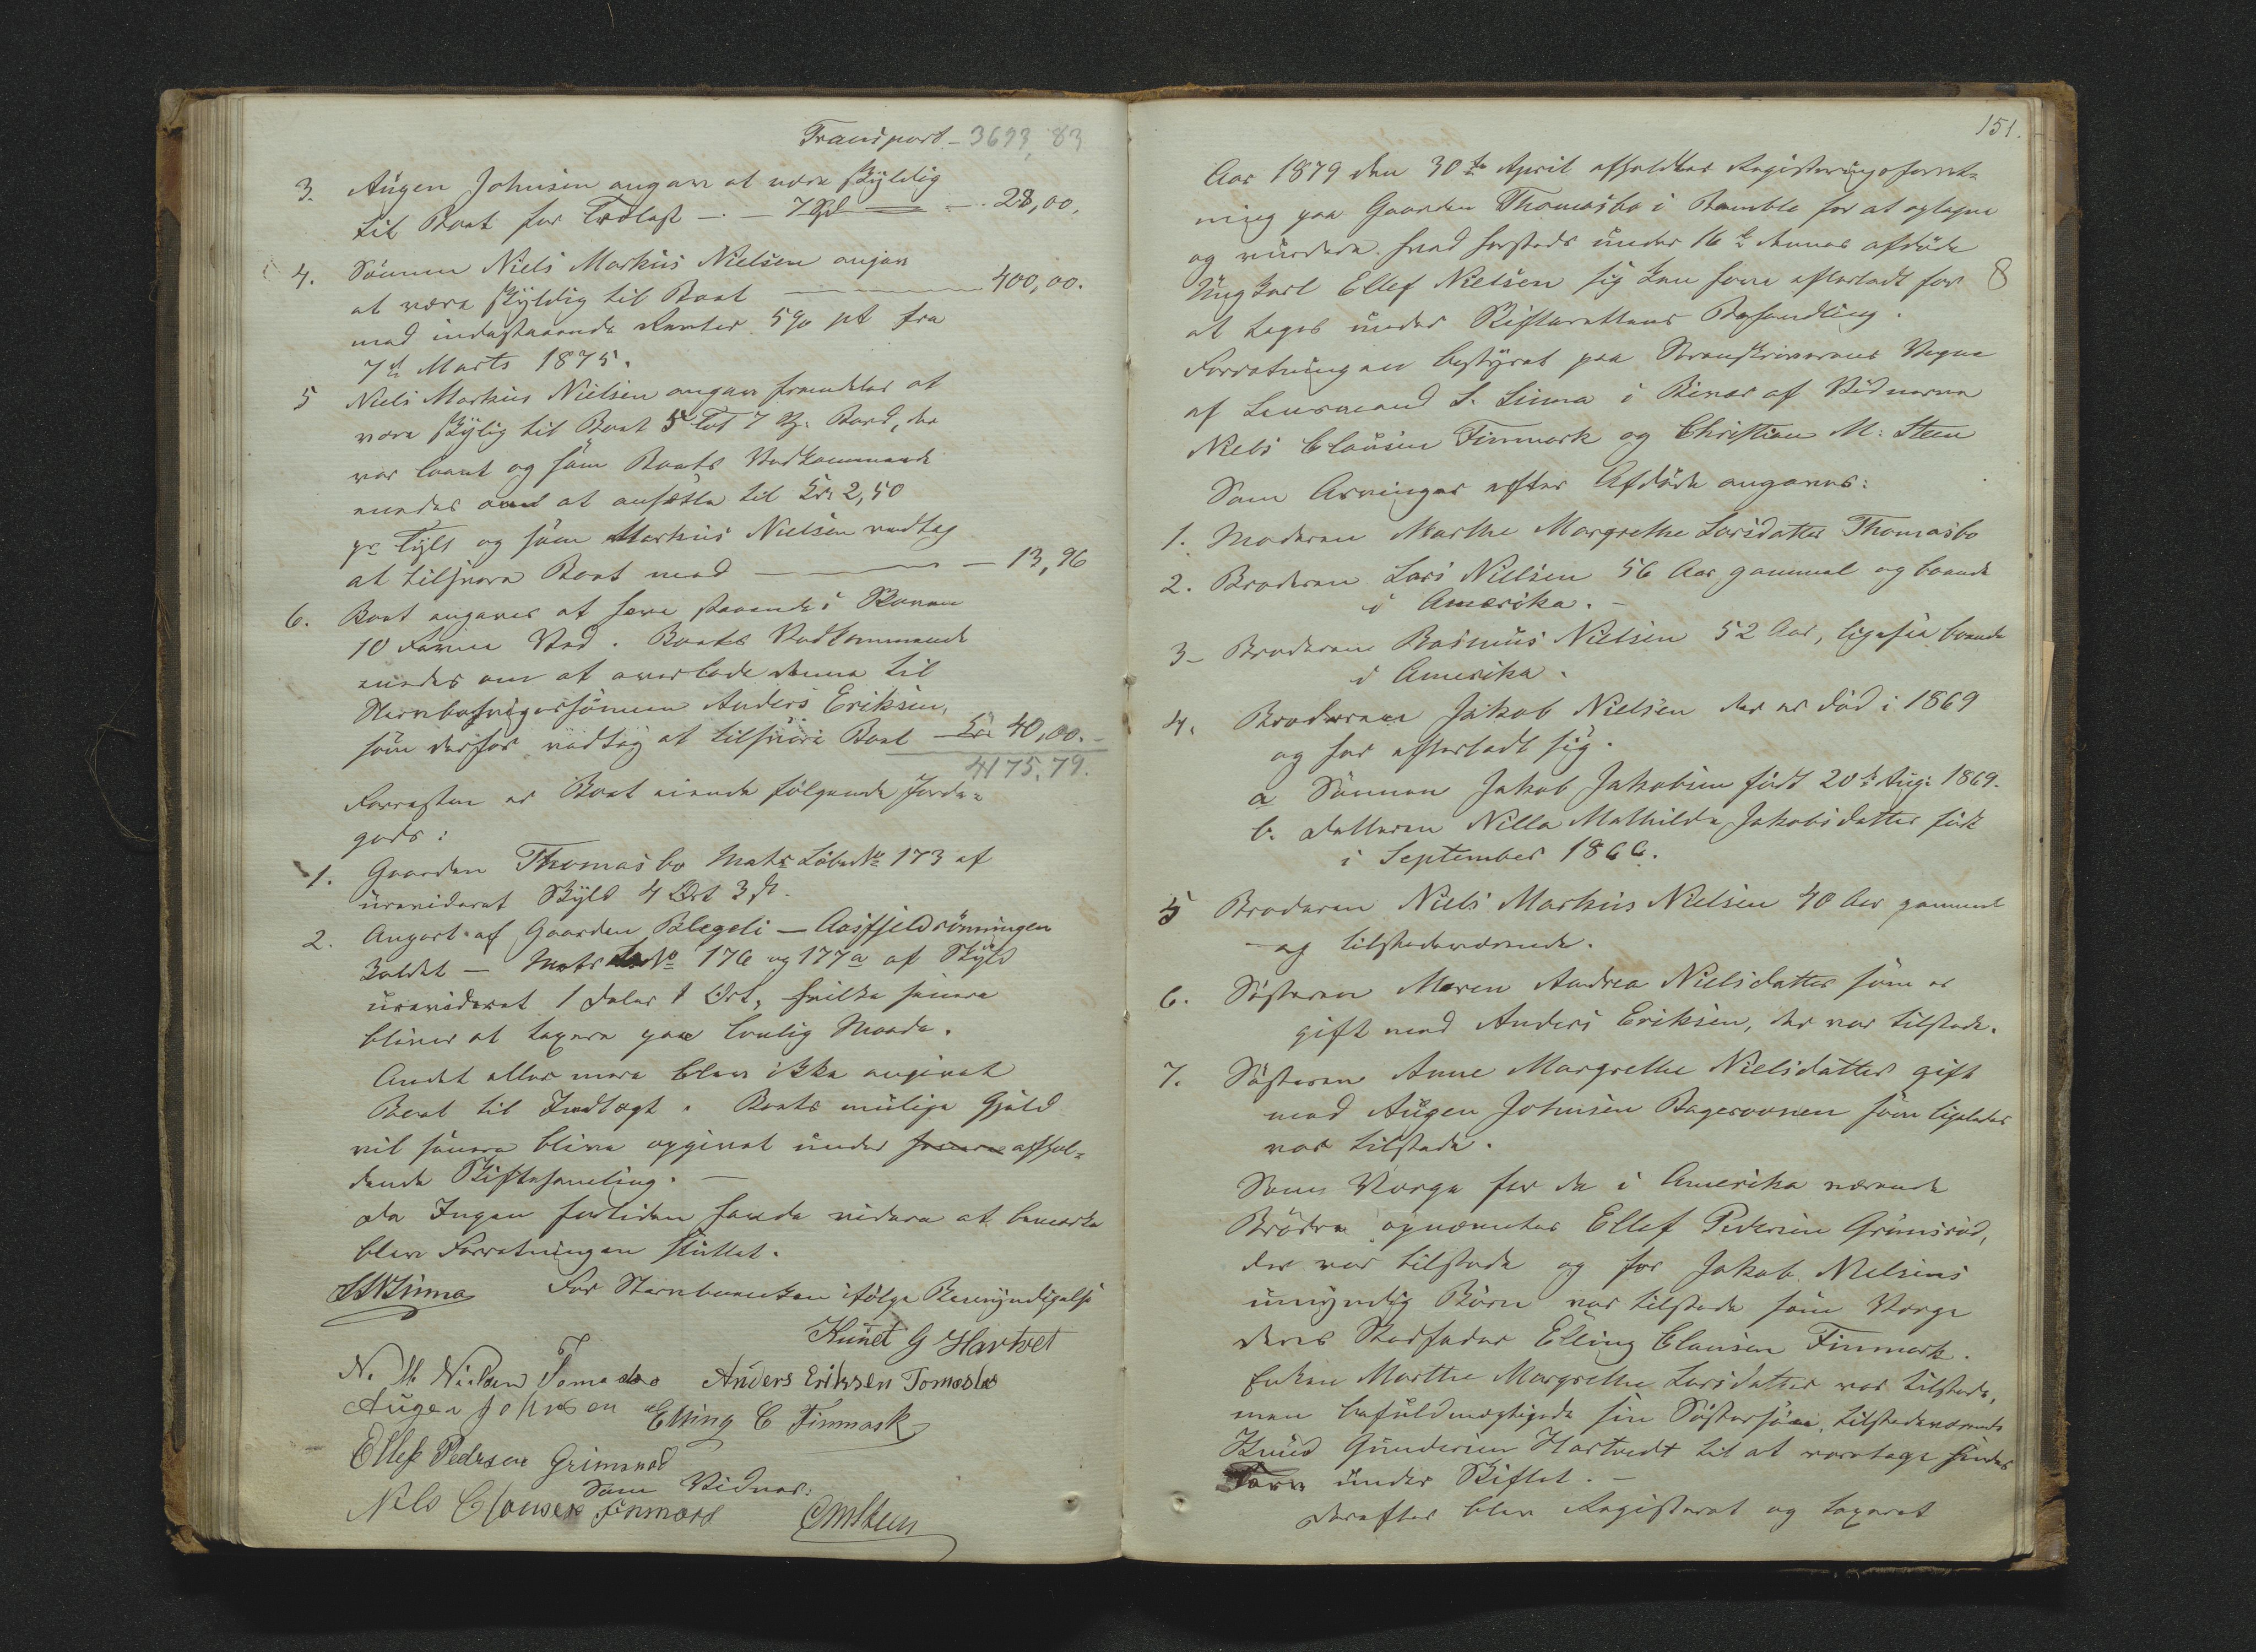 Transport - 3693,83
3. Augen Johnsen angav at være skyldig
til Boet for Trælast - - 7 Spd - 28,00.
4. Sønnen Niels Markus Nielsen angav
at være skyldig til Boet - 400,00.
med indestaaende Renter 5% pt fra
7de Marts 1875.
5 Niels Markus Nielsen angav fremdeles at
være skylig til Boet 5 Tylt 7 St. Bord, der
var laant og som Boets Vedkommende
enedes om at ansætte til Kr 2,50
pr Tylt og som Markus Nielsen vedtog
at tilsvare Boet med - 13,96
6. Boet angaves at have staaende i Skoven
10 Favne Ved. Boets Vedkommende
enedes om at overlade denne til
Stervboesvigersønnen Anders Eriksen,
som derfor vedtog at tilsvare Boet Kr. 40,00.-
4175,79.
Forresten er Boet eiende følgende Jorde=
gods:
1. Gaarden Thomasbo Matr Løbe No 173 af
urevideret Skyld 4 Ort 3 ß.
2. Anpart af Gaarden Blegeli - Aasfjeldrønningen
kaldet - Matr No 176 og 177a af Skyld
urevideret 1 Daler 1 Ort, hvilke senere
bliver at taxere paa lovlig Maade.
Andet eller mere blev ikke angivet
Boet til Indtægt. Boets mulige Gjæld
vil senere blive opgivet under senere afhol=
dende Skiftesamling. -
Da Ingen fortiden havde videre at bemærke
blev Forretningen sluttet.
For Stervboenken ifølge Bemyndigelse
Knut G Hartvet
N. M. Nielsen Tomasbo Anders Eriksen Tomasbo
Augen Johnsen Elling C Finmark
Ellef Pedersen Grimsrød
Som Vidner:
Nils Clausen Finmark CMSteen
151.
Aar 1879 den 30te April afholdtes Registreringsforret=
ning paa Gaarden Thomasbo i Bamble for at optegne
og vurdere hvad herstedes under 16de dennes afdøde
Ungkarl Ellef Nielsen sig kan have efterladt for 8
at tages under Skifterettens Behandling.
Forretningen bestyret paa Sorenskriverens Vegne
af Lensmand S. Linna i Overvær af Vidnerne
Niels Clausen Finmark og Christian M. Steen
Som Arvinger efter Afdøde angaves:
1. Moderen Marthe Margrethe Larsdatter Thomasbo
2. Broderen Lars Nielsen 56 Aar gammel og boende
i Amerika. -
3- Broderen Rasmus Nielsen 52 Aar, ligesaa boende
i Amerika.
4. Broderen Jakob Nielsen der er død i 1869
og har efterladt sig.
a Sønnen Jakob Jakobsen født 20de Aug: 1869.
b. Datteren Nilla Mathilde Jakobsdatter født
i September 1866.
5 Broderen Niels Markus Nielsen 40 Aar gammel
- og tilstedeværende.
6. Søsteren Maren Andrea Nielsdatter som er
gift med Anders Eriksen, der var tilstede.
7. Søsteren Anne Margrethe Nielsdatter gift
med Augen Johnsen som ligeledes
var tilstede.
Som Værge for de i Amerika værende
Brødre opnævntes Ellef Pedersen Grimsrød,
der var tilstede og for Jakob Nielsens
umyndig Børn var tilstede som Værge
deres Stedfader Elling Clausen Finmark.
Enken Marthe Margrethe Larsdatter var tilstede,
men befuldmægtigede sin Søstersøn, tilstedeværende
Knud Gundersen Hartvedt til at varetage hendes
Tarv under Skiftet. -
Derefter blev Registreret og taxeret